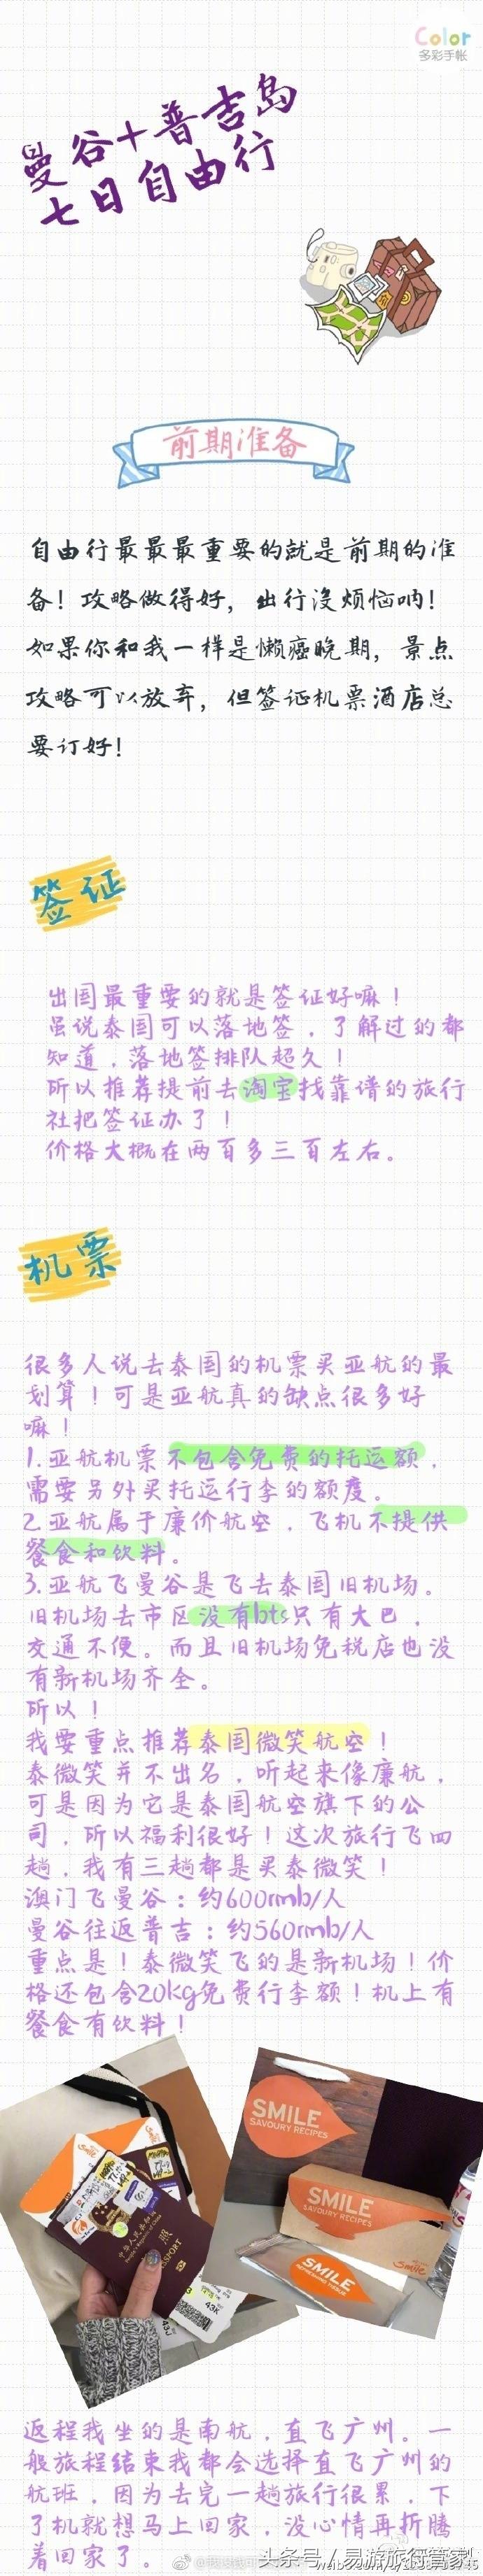 Color
多彩手帐
曼谷+普吉岛
七日自由行
前期准备
自由行最最最重要的就是前期的准
备！攻略做得好，出行没烦恼呐！
如果你和我一样是懒癌晚期，景点
攻略可以放弃，但签证机票酒店总
要订好！
签证
出国最重要的就是签证好嘛！
虽说泰国可以落地签，了解过的都
知道，落地签排队超久！
所以推荐提前去淘宝找靠谱的旅行
社把签证办了！
价格大概在两百多三百左右。
机票
很多人说去泰国的机票买亚航的最
划算！可是亚航真的缺点很多好
嘛！
1.亚航机票不包含免费的托运额，
需要另外买托运行李的额度。
2.亚航属于廉价航空，飞机不提供
餐食和饮料。
3.亚航飞曼谷是飞去泰国旧机场。
旧机场去市区没有bts只有大巴，
交通不便。而且旧机场免税店也没
有新机场齐全。
所以！
我要重点推荐泰国微笑航空！
泰微笑并不出名，听起来像廉航，
可是因为它是泰国航空旗下的公
司，所以福利很好！这次旅行飞四
趟，我有三趟都是买泰微笑！
澳门飞曼谷：约600rmb/人
曼谷往返普吉：约560rmb/人
重点是！泰微笑飞的是新机场！价
格还包含20kg免费行李额！机上有
餐食有饮料！
SMILE
SAVOURY RECIPES
SMILE
SAVOURY RECIPES
smile
SMILE
smile
中华人民共和国
People's Republic of China
护照
PASSPORT
43K
返程我坐的是南航，直飞广州。一
般旅程结束我都会选择直飞广州的
航班，因为去完一趟旅行很累，下
了机就想马上回家，没心情再折腾
着回家了。
头条号/易游旅行管家